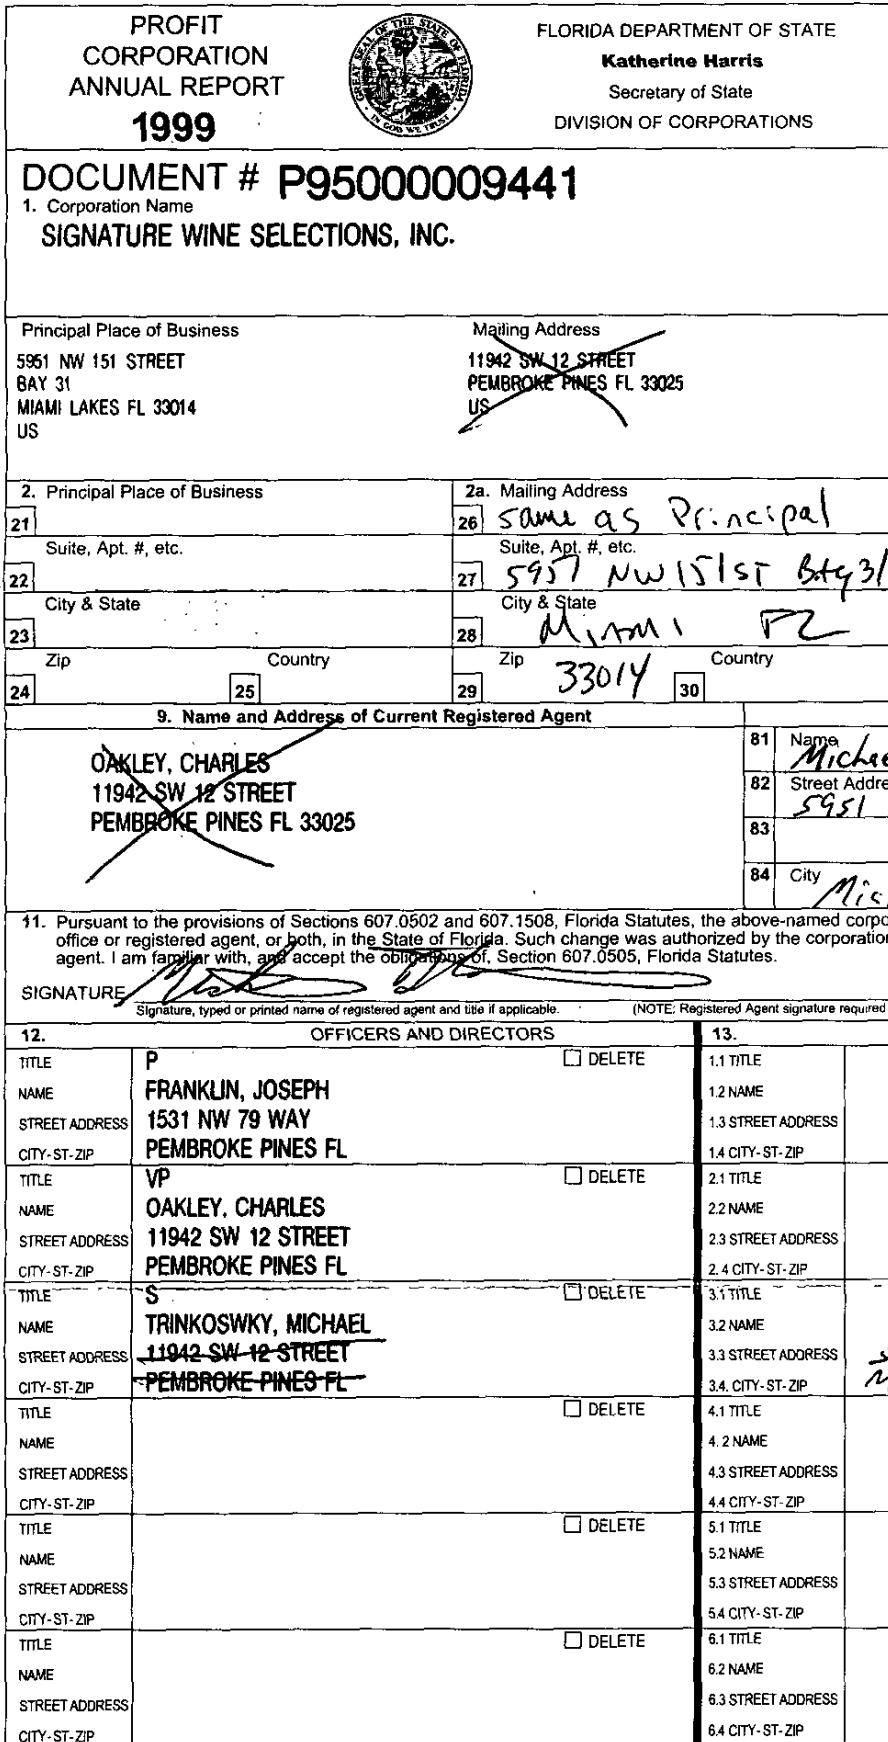 PROFIT
CORPORATION
ANNUAL REPORT
1999
GREAT SEAL OF THE STATE OF FLORIDA
IN GOD WE TRUST
FLORIDA DEPARTMENT OF STATE
Katherine Harris
Secretary of State
DIVISION OF CORPORATIONS
DOCUMENT # P95000009441
1. Corporation Name
SIGNATURE WINE SELECTIONS, INC.
Principal Place of Business
5951 NW 151 STREET
BAY 31
MIAMI LAKES FL 33014
US
Mailing Address
11942 SW 12 STREET
PEMBROKE PINES FL 33025
US
2. Principal Place of Business
21
Suite, Apt. #, etc.
22
City & State
23
Zip
24
Country
25
2a. Mailing Address
26 same as Principal
Suite, Apt. #, etc.
27 5951 NW 151 ST Bay 31
City & State
28 Miami FL
Zip
29 33014
Country
30
9. Name and Address of Current Registered Agent
OAKLEY, CHARLES
11942 SW 12 STREET
PEMBROKE PINES FL 33025
81 Name
Michae
82 Street Addre
5951
83
84 City
Mia
11. Pursuant to the provisions of Sections 607.0502 and 607.1508, Florida Statutes, the above-named corpo
office or registered agent, or both, in the State of Florida. Such change was authorized by the corporation
agent. I am familiar with, and accept the obligations of, Section 607.0505, Florida Statutes.
SIGNATURE
Signature, typed or printed name of registered agent and title if applicable. (NOTE: Registered Agent signature required
12. OFFICERS AND DIRECTORS 13.
TITLE P DELETE 1.1 TITLE
NAME FRANKLIN, JOSEPH 1.2 NAME
STREET ADDRESS 1531 NW 79 WAY 1.3 STREET ADDRESS
CITY-ST-ZIP PEMBROKE PINES FL 1.4 CITY-ST-ZIP
TITLE VP DELETE 2.1 TITLE
NAME OAKLEY, CHARLES 2.2 NAME
STREET ADDRESS 11942 SW 12 STREET 2.3 STREET ADDRESS
CITY-ST-ZIP PEMBROKE PINES FL 2.4 CITY-ST-ZIP
TITLE S DELETE 3.1 TITLE
NAME TRINKOSWKY, MICHAEL 3.2 NAME
STREET ADDRESS 11942 SW 12 STREET 3.3 STREET ADDRESS
CITY-ST-ZIP PEMBROKE PINES FL 3.4. CITY-ST-ZIP
TITLE DELETE 4.1 TITLE
NAME 4.2 NAME
STREET ADDRESS 4.3 STREET ADDRESS
CITY-ST-ZIP 4.4 CITY-ST-ZIP
TITLE DELETE 5.1 TITLE
NAME 5.2 NAME
STREET ADDRESS 5.3 STREET ADDRESS
CITY-ST-ZIP 5.4 CITY-ST-ZIP
TITLE DELETE 6.1 TITLE
NAME 6.2 NAME
STREET ADDRESS 6.3 STREET ADDRESS
CITY-ST-ZIP 6.4 CITY-ST-ZIP